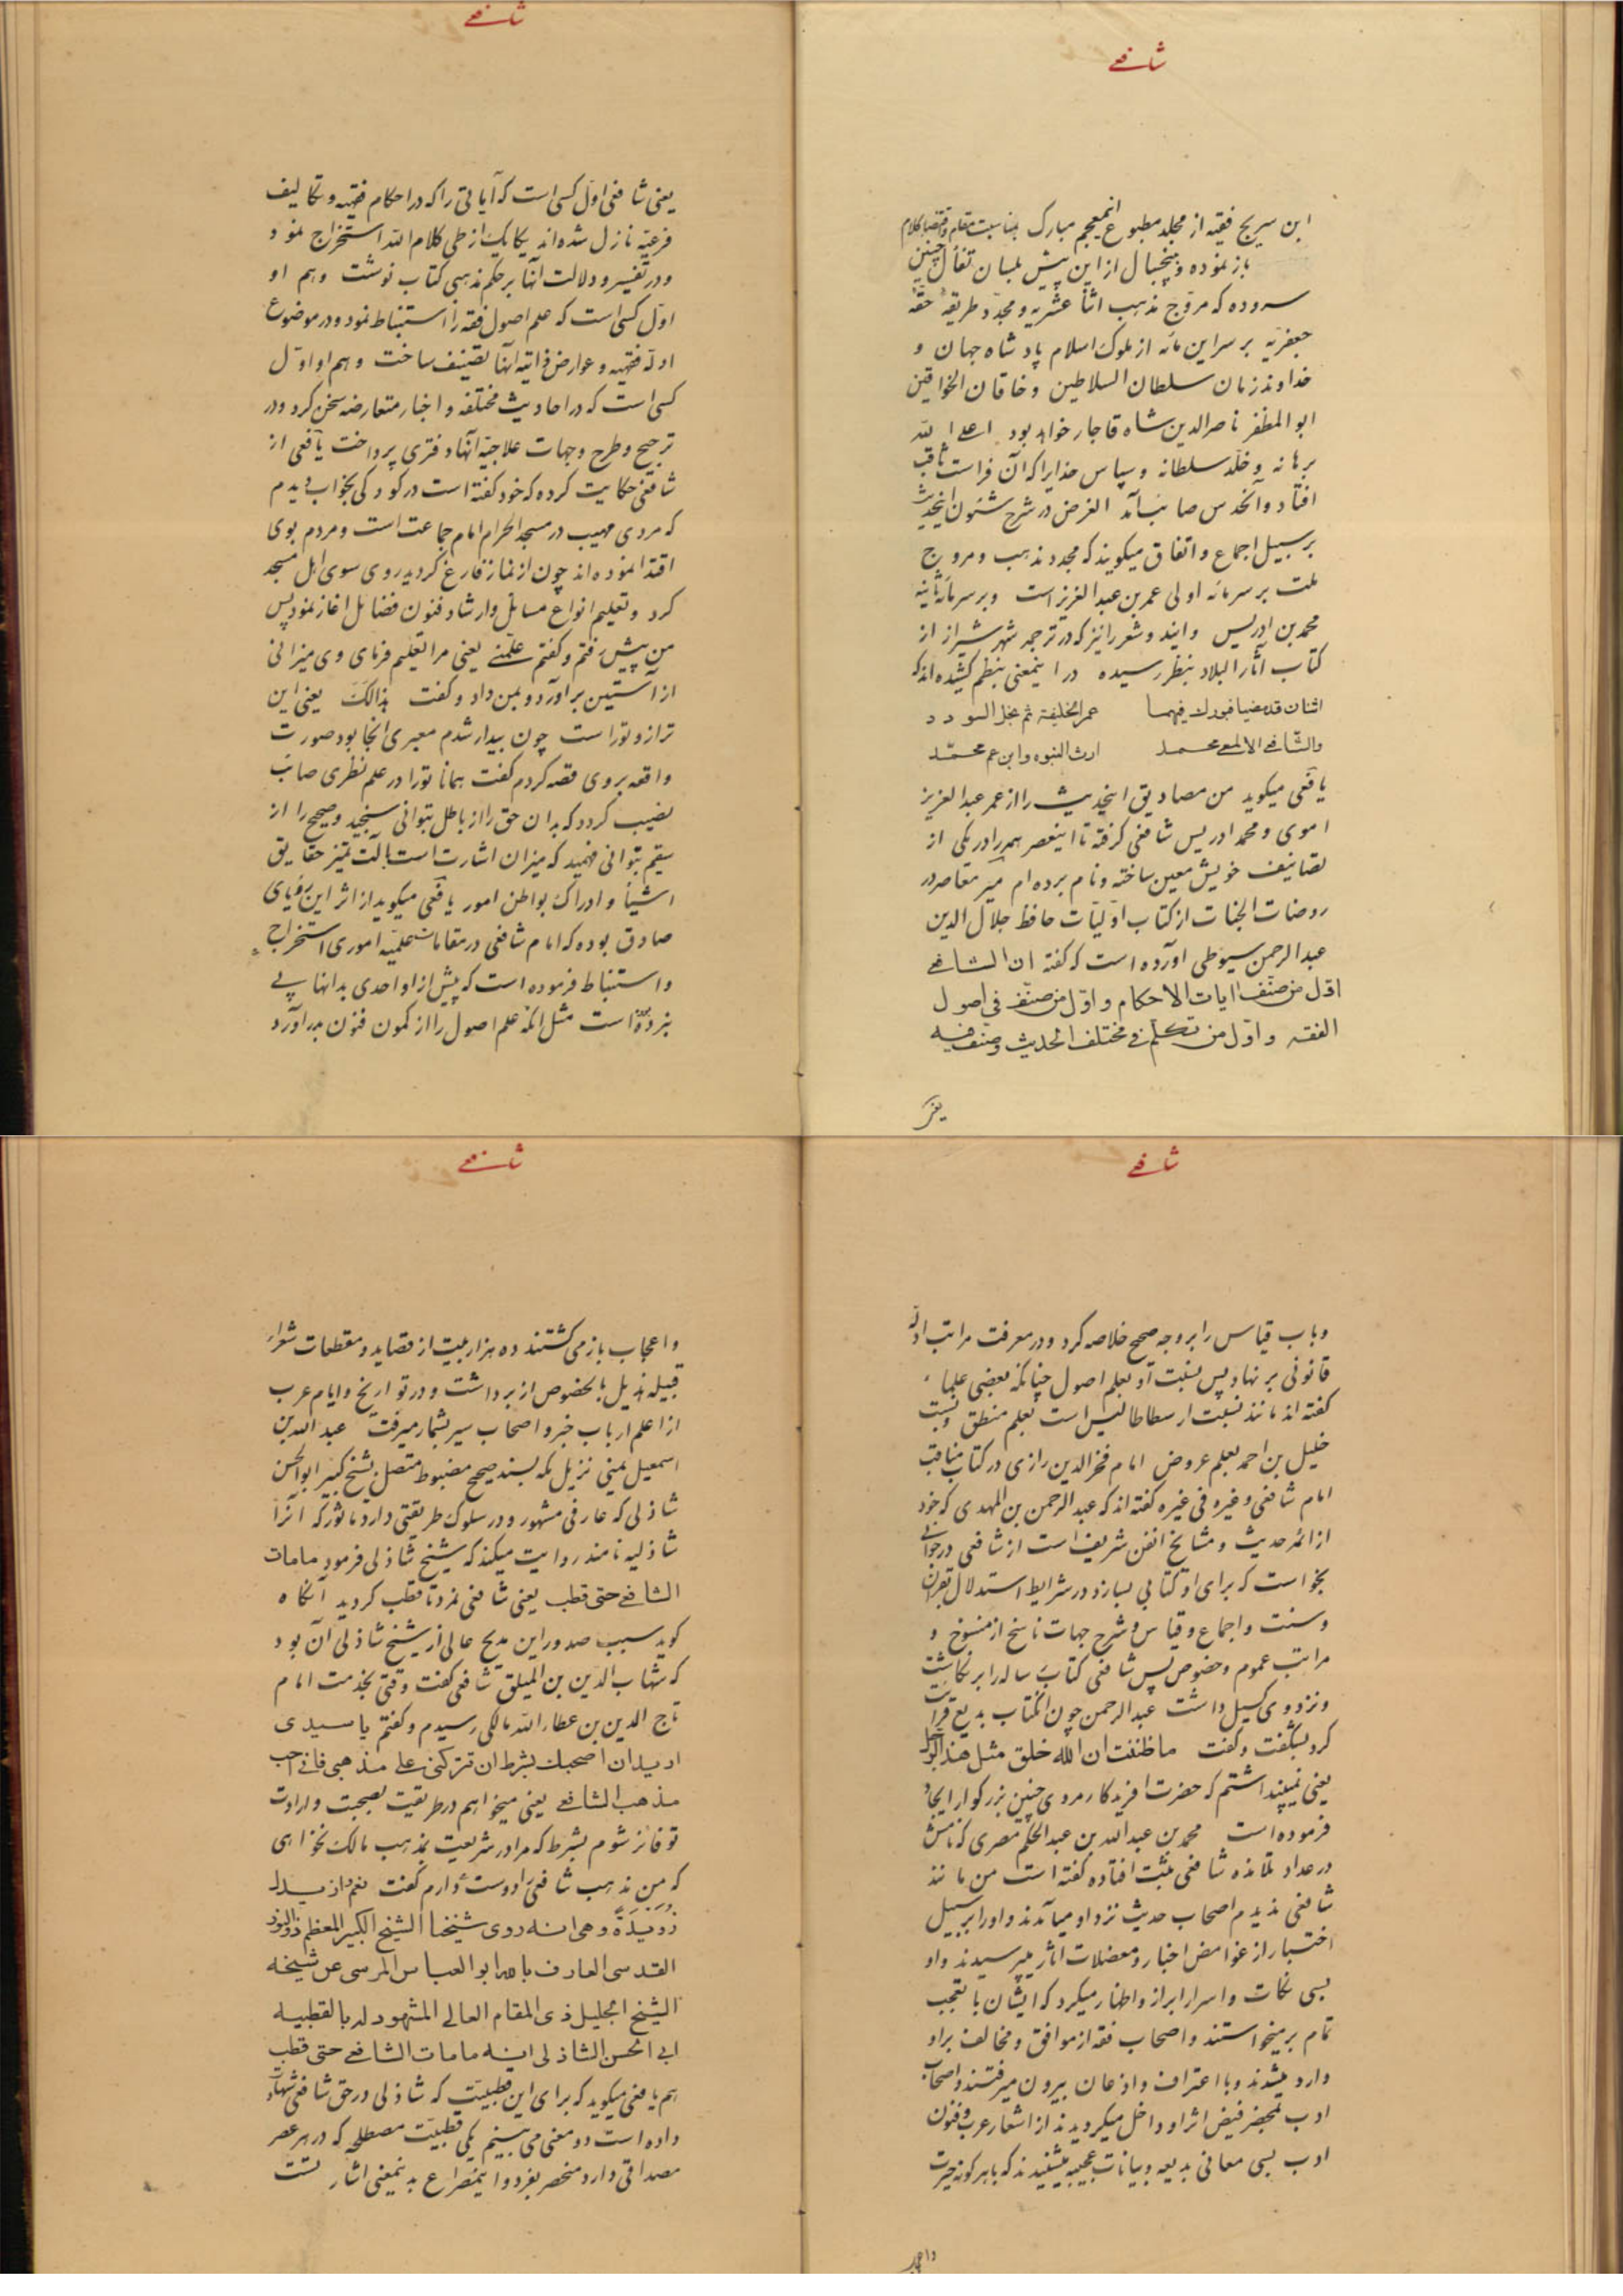 شافعی
ابن سریج فقیه از مجلد مطبوع این معجم مبارک بمناسبت مقام و اقتضاء کلام
باز نموده و پنجسال از این پیش بلسان تفأل چنین
سروده که مروّج مذهب اثنا عشریه و مجدّد طریقهٔ حقّهٔ
جعفریّه بر سر این مائه از ملوک اسلام پادشاه جهان و
خداوند زمان سلطان السلاطین و خاقان الخواقین
ابوالمظفر ناصرالدین شاه قاجار خواهد بود اعلا الله
برهانه و خلّد سلطانه و سپاس خدایرا که آن فراست ثاقب
افتاد و آنحدس صائب آمد الغرض در شرح شئون اینحدیث
بر سبیل اجماع و اتفاق میگویند که مجدد مذهب و مروج
ملت بر سر مائه اولی عمر بن عبد العزیز است و بر سر مائه ثانیه
محمد بن ادریس و ایندو شعر را نیز که در ترجمه شهر شیراز از
کتاب آثار البلاد بنظر رسیده در اینمعنی بنظم کشیده‌اند که
اثنان قد مضیا فبورك فیهما عمر الخلیفة ثم نجل السودد
والشّافعی الالمعی محمد ارث النبوه وابن عم محمّد
یافعی میگوید من مصادیق اینحدیث را از عمر عبد العزیز
اموی و محمد ادریس شافعی گرفته تا اینعصر همه را در یکی از
تصانیف خویش معین ساخته و نام برده‌ام میر معاصر در
روضات الجنات از کتاب اوّلیّات حافظ جلال الدین
عبد الرحمن سیوطی آورده است که گفته ان الشافعی
اوّل من صنّف آیات الاحکام و اوّل من صنّف فی اصول
الفقه و اوّل من تکلّم فی مختلف الحدیث وصنف فیه
یعنی
شافعی
یعنی شافعی اوّل کسی است که آیاتی را که در احکام فقهیه و تکالیف
فرعیّه نازل شده‌اند یکایک از طی کلام الله استخراج نمود
و در تفسیر و دلالت آنها بر حکم مذهبی کتاب نوشت و هم او
اوّل کسی است که علم اصول فقه را استنباط نمود و در موضوع
ادلّه فقهیه و عوارض ذاتیه آنها تصنیف ساخت و هم او اوّل
کسی است که در احادیث مختلفه و اخبار متعارضه سخن کرد و در
ترجیح و طرح و جهات علاجیّه آنها دفتری پرداخت یافعی از
شافعی حکایت کرده که خود گفته است در کودکی بخواب دیدم
که مردی مهیب در مسجد الحرام امام جماعت است و مردم بوی
اقتدا نموده‌اند چون از نماز فارغ گردید روی سوی اهل مسجد
کرد و تعلیم انواع مسائل و ارشاد فنون فضائل آغاز نمود پس
من پیش رفتم و گفتم علّمنی یعنی مرا تعلیم فرمای وی میزانی
از آستین برآورد و بمن داد و گفت هذا لَكَ یعنی این
ترازو تو راست چون بیدار شدم معبری آنجا بود صورت
واقعه بر وی قصه کردم گفت همانا تو را در علم نظری صائب
نصیب گردد که بدان حق را از باطل بتوانی سنجید و صحیح را از
سقیم بتوانی فهمید که میزان اشارت است بآلت تمیز حقایق
اشیاء و ادراک بواطن امور یافعی میگوید از اثر این رؤیای
صادق بوده که امام شافعی در مقامات علمیّه اموری استخراج
و استنباط فرموده است که پیش از او احدی بدانها پی
نبرده است مثل آنکه علم اصول را از کمون فنون بدر آورد
شافعی
و باب قیاس را بر وجه صحیح خلاصه کرد و در معرفت مراتب ادلّه
قانونی بر نهاد پس نسبت او بعلم اصول چنانکه بعضی علماء
گفته‌اند مانند نسبت ارسطاطالیس است بعلم منطق و نسبت
خلیل بن احمد بعلم عروض امام فخر الدین رازی در کتاب مناقب
امام شافعی و غیره فی غیره گفته‌اند که عبد الرحمن بن المهدی که خود
از ائمه حدیث و مشایخ انفن شریف است از شافعی در جوانی
بخواست که برای او کتابی بسازد در شرایط استدلال بقرآن
و سنت و اجماع و قیاس و شرح جهات ناسخ از منسوخ و
مراتب عموم و خصوص پس شافعی کتاب رساله را بر نگاشت
و نزد وی گسیل داشت عبد الرحمن چون آنکتاب بدیع قرائت
کرد بشگفت و گفت ما ظننت ان الله خلق مثل هذا الرجل
یعنی نمیپنداشتم که حضرت آفریدگار مردی چنین بزرگوار ایجاد
فرموده است محمد بن عبد الله بن عبد الحکم مصری که نامش
در عداد تلامذه شافعی ثبت افتاده گفته است من مانند
شافعی ندیدم اصحاب حدیث نزد او میآمدند و او را بر سبیل
اختبار از غوامض اخبار و معضلات آثار میپرسیدند و او
بسی نکات و اسرار ابراز و اظهار میکرد که ایشان با تعجب
تمام برمیخواستند و اصحاب فقه از موافق و مخالف بر او
وارد میشدند و با اعتراف و اذعان بیرون میرفتند و اصحاب
ادب بمحضر فیض اثر او داخل میگردیدند از اشعار عرب و فنون
ادب بسی معانی بدیعه و بیانات عجیبه میشنیدند که با هر گونه حیرت
و اعجاب
شافعی
و اعجاب باز می‌گشتند ده هزار بیت از قصاید و مقطعات شعراء
قبیله هذیل بالخصوص از بر داشت و در تواریخ و ایام عرب
از اعلم ارباب خبر و اصحاب سیر بشمار میرفت عبد الله بن
اسمعیل یمنی نزیل مکه بسند صحیح مضبوط متصل بشیخ کبیر ابو الحسن
شاذلی که عارفی مشهور و در سلوک طریقتی دارد مأثور که آنرا
شاذلیه نامند روایت میکند که شیخ شاذلی فرمود مامات
الشافعی حتی قطب یعنی شافعی نمرد تا قطب گردید آنگاه
گوید سبب صدور این مدیح عالی از شیخ شاذلی آن بود
که شهاب الدین بن المیلق شافعی گفت وقتی بخدمت امام
تاج الدین بن عطاء الله مالکی رسیدم و گفتم یا سیدی
ارید ان اصحبك بشرط ان تترکنی علی مذهبی فانی احب
مذهب الشافعی یعنی میخواهم در طریقت بصحبت و ارادت
تو فائز شوم بشرط که مرا در شریعت بمذهب مالک نخواهی
که من مذهب شافعی را دوست دارم گفت نعم و ازیدك
زویدة وهی انه روی شیخنا الشیخ الکبیر المعظم ذو النور
القدسی العارف بالله ابو العباس المرسی عن شیخه
الشیخ الجلیل ذی المقام العالی المشهود له بالقطبیه
ابی الحسن الشاذلی انه مامات الشافعی حتی قطب
هم یافعی میگوید که برای این قطبیّت که شاذلی در حق شافعی شهادت
داده است دو معنی می بینیم یکی قطبیّت مصطلحه که در هر عصر
مصداقی دارد منحصر بفرد و اینمصراع بدینمعنی اشارتست